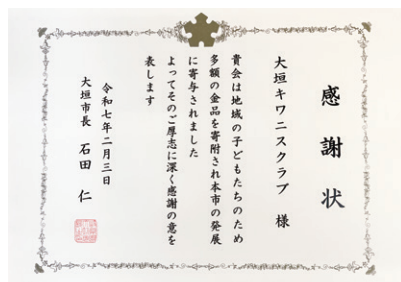 感謝状
大垣キワニスクラブ 様
貴会は地域の子どもたちのため
多額の金品を寄附され本市の発展
に寄与されました
よってそのご厚志に深く感謝の意を
表します
令和七年二月三日
大垣市長 石田 仁